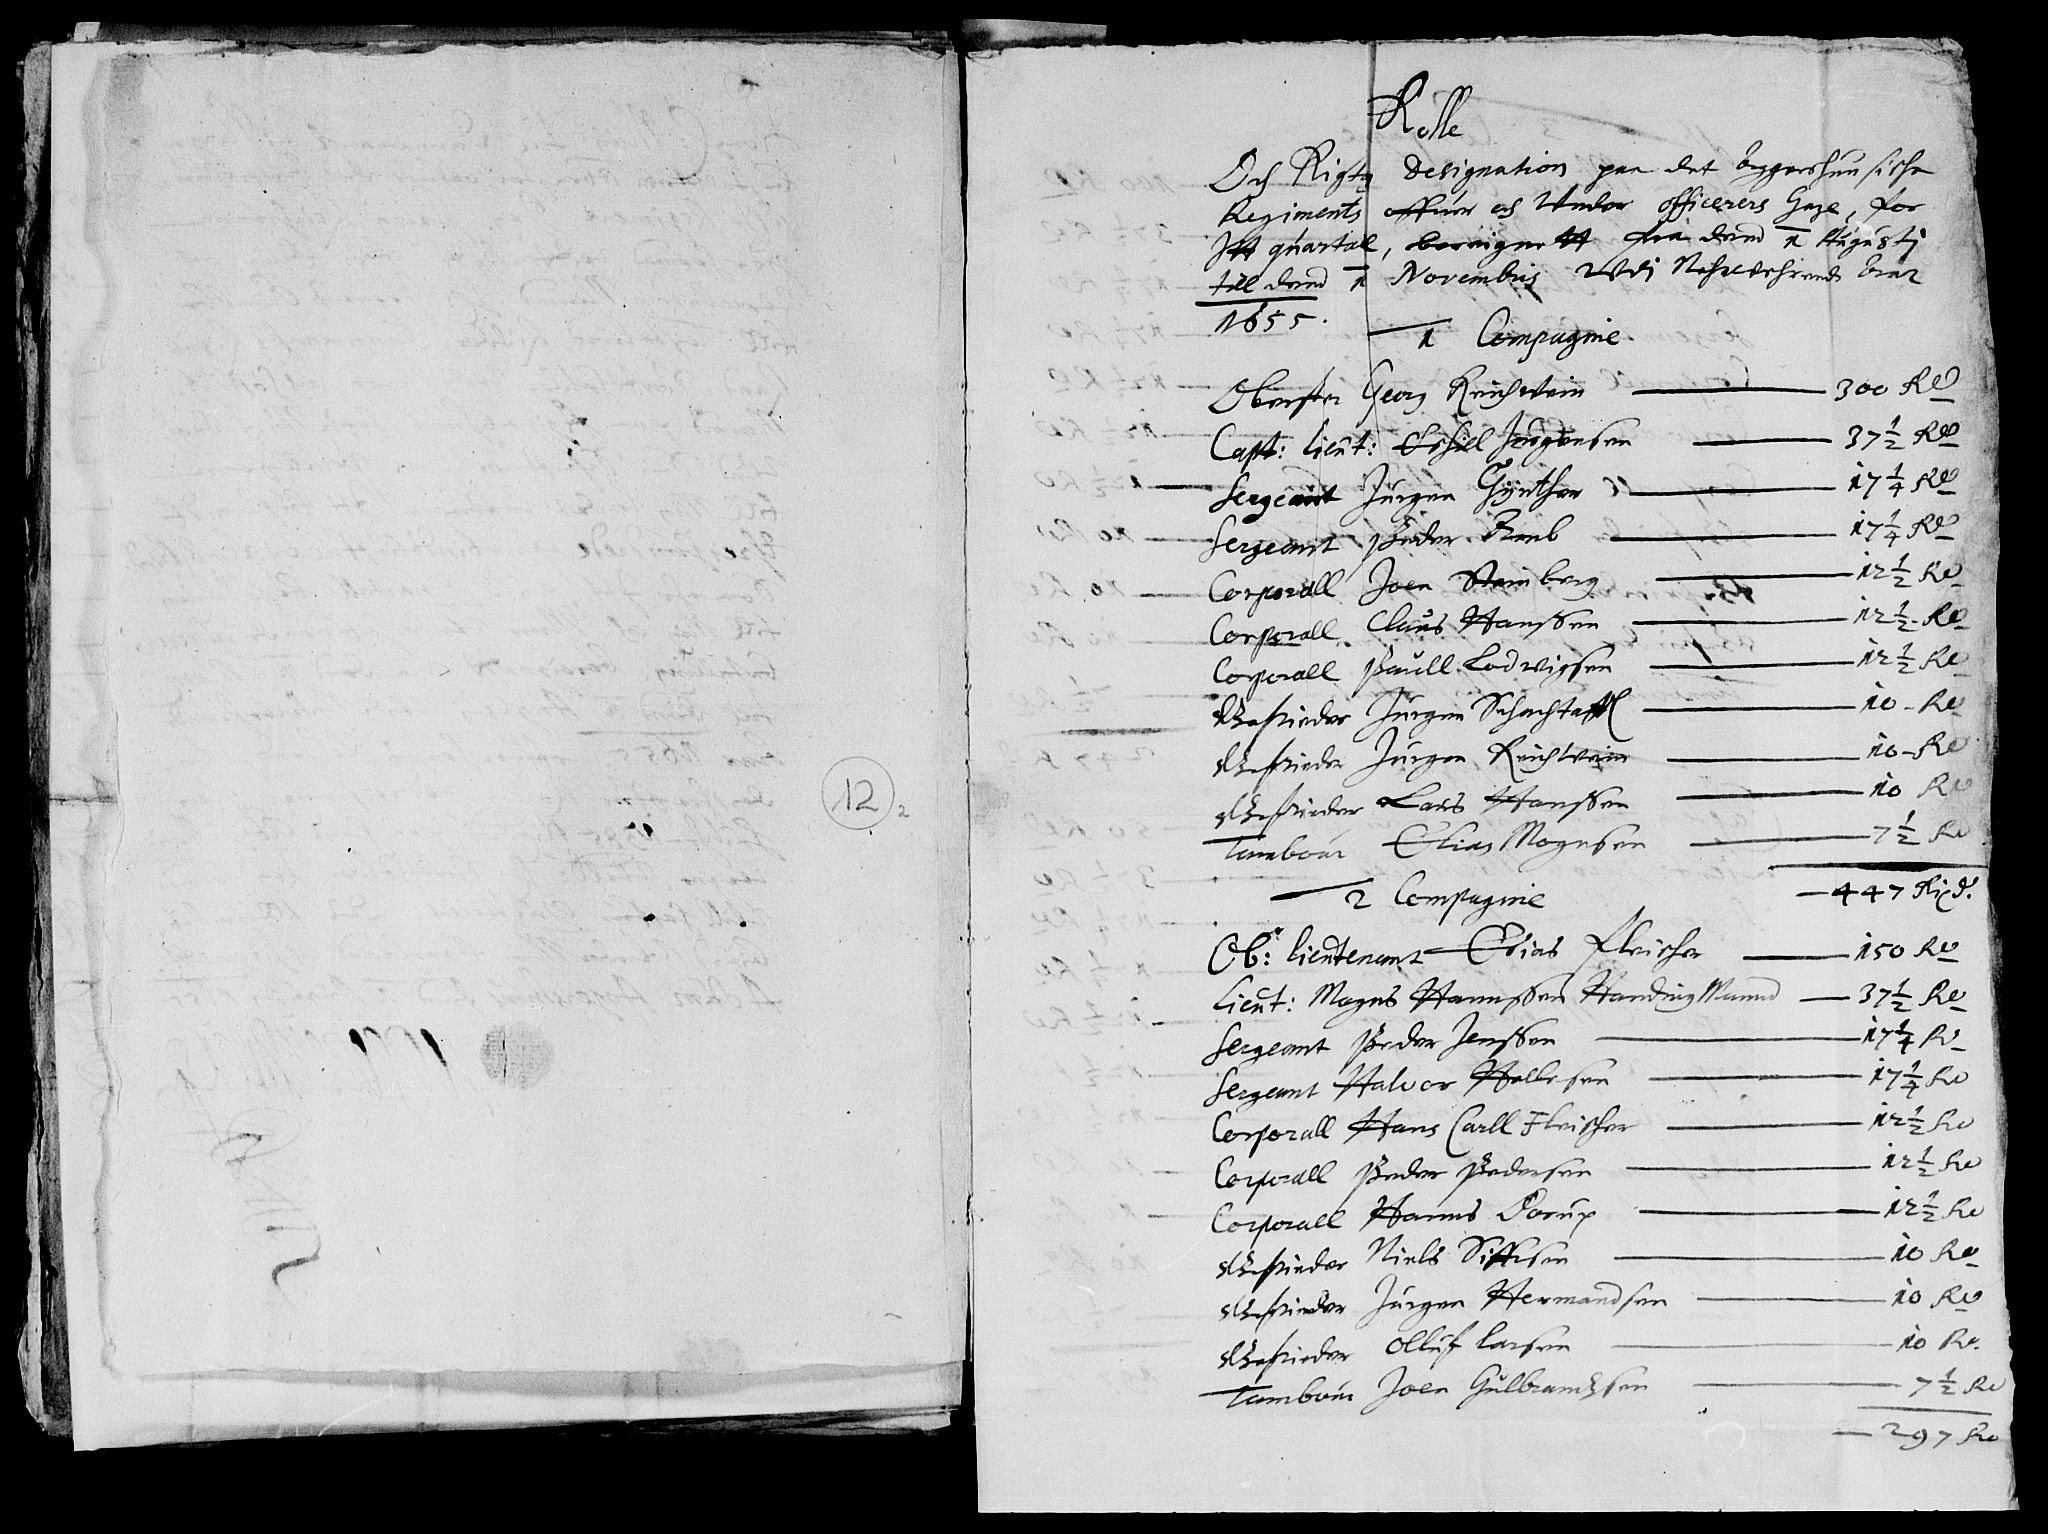 12
2
Rolle
Och Rigtg Designation paa det Aggershuusische
Regiments officier och Under officerers Gage, for
Itt quartal, bereignett fra dend 1 Augustj
till dend 1 Novembris Udj Nehrverende Aar
1655.
1 Compagnie
Oberster Georg Reichwein 300 Rd
Capt: Lieut: Eschil Jurgensen 37 1/2 Rd
Sergeant Jürgen Gÿnther 17 1/4 Rd
Sergeant Peder Raeb 17 1/4 Rd
Corporall Joen Steinberg 12 1/2 Rd
Corporall Claus Hanssen 12 1/2 Rd
Corporall Paull Lodwigsen 12 1/2 Rd
Gefrieder Jürgen 10 Rd
Gefrieder Jürgen Reichwein 10 Rd
Gefrieder Lars Hanssen 10 Rd
Tambour Elias Mogensen 7 1/2 Rd
447 Rixd.
2 Compagnie
Ob: Lieutenant Elias Fleischer 150 Rd
Lieut: Mogns Hannssen Handingmand 37 1/2 Rd
Sergeant Peder Jenssen 17 1/4 Rd
Sergeant Halvor Hellesen 17 1/4 Rd
Corporall Hans Carll Fleischer 12 1/2 Rd
Corporall Peder Pedersen 12 1/2 Rd
Corporall Hanns Dorup 12 1/2 Rd
Gefrieder Niels Siffesen 10 Rd
Gefrieder Jürgen Hermandsen 10 Rd
Gefrieder Olluf Larsen 10 Rd.
Tambour Joen Gulbrandsen 7 1/2 Rd
297 Rd